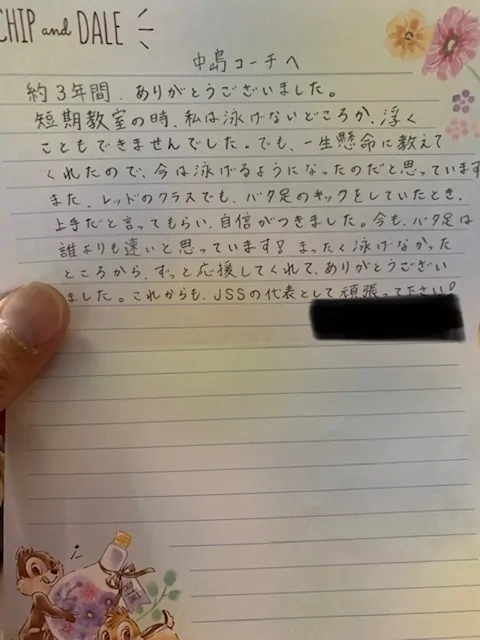 CHIP and DALE
中島コーチへ
約3年間、ありがとうございました。
短期教室の時、私は泳げないどころか、浮く
こともできませんでした。でも、一生懸命に教えて
くれたので、今は泳げるようになったのだと思っています
また、レッドのクラスでも、バタ足のキックをしていたとき、
上手だと言ってもらい、自信がつきました。今も、バタ足は
誰よりも速いと思っています!まったく泳げなかった
ところから、ずっと応援してくれて、ありがとうござい
ました。これからも、JSSの代表として頑張って下さい!